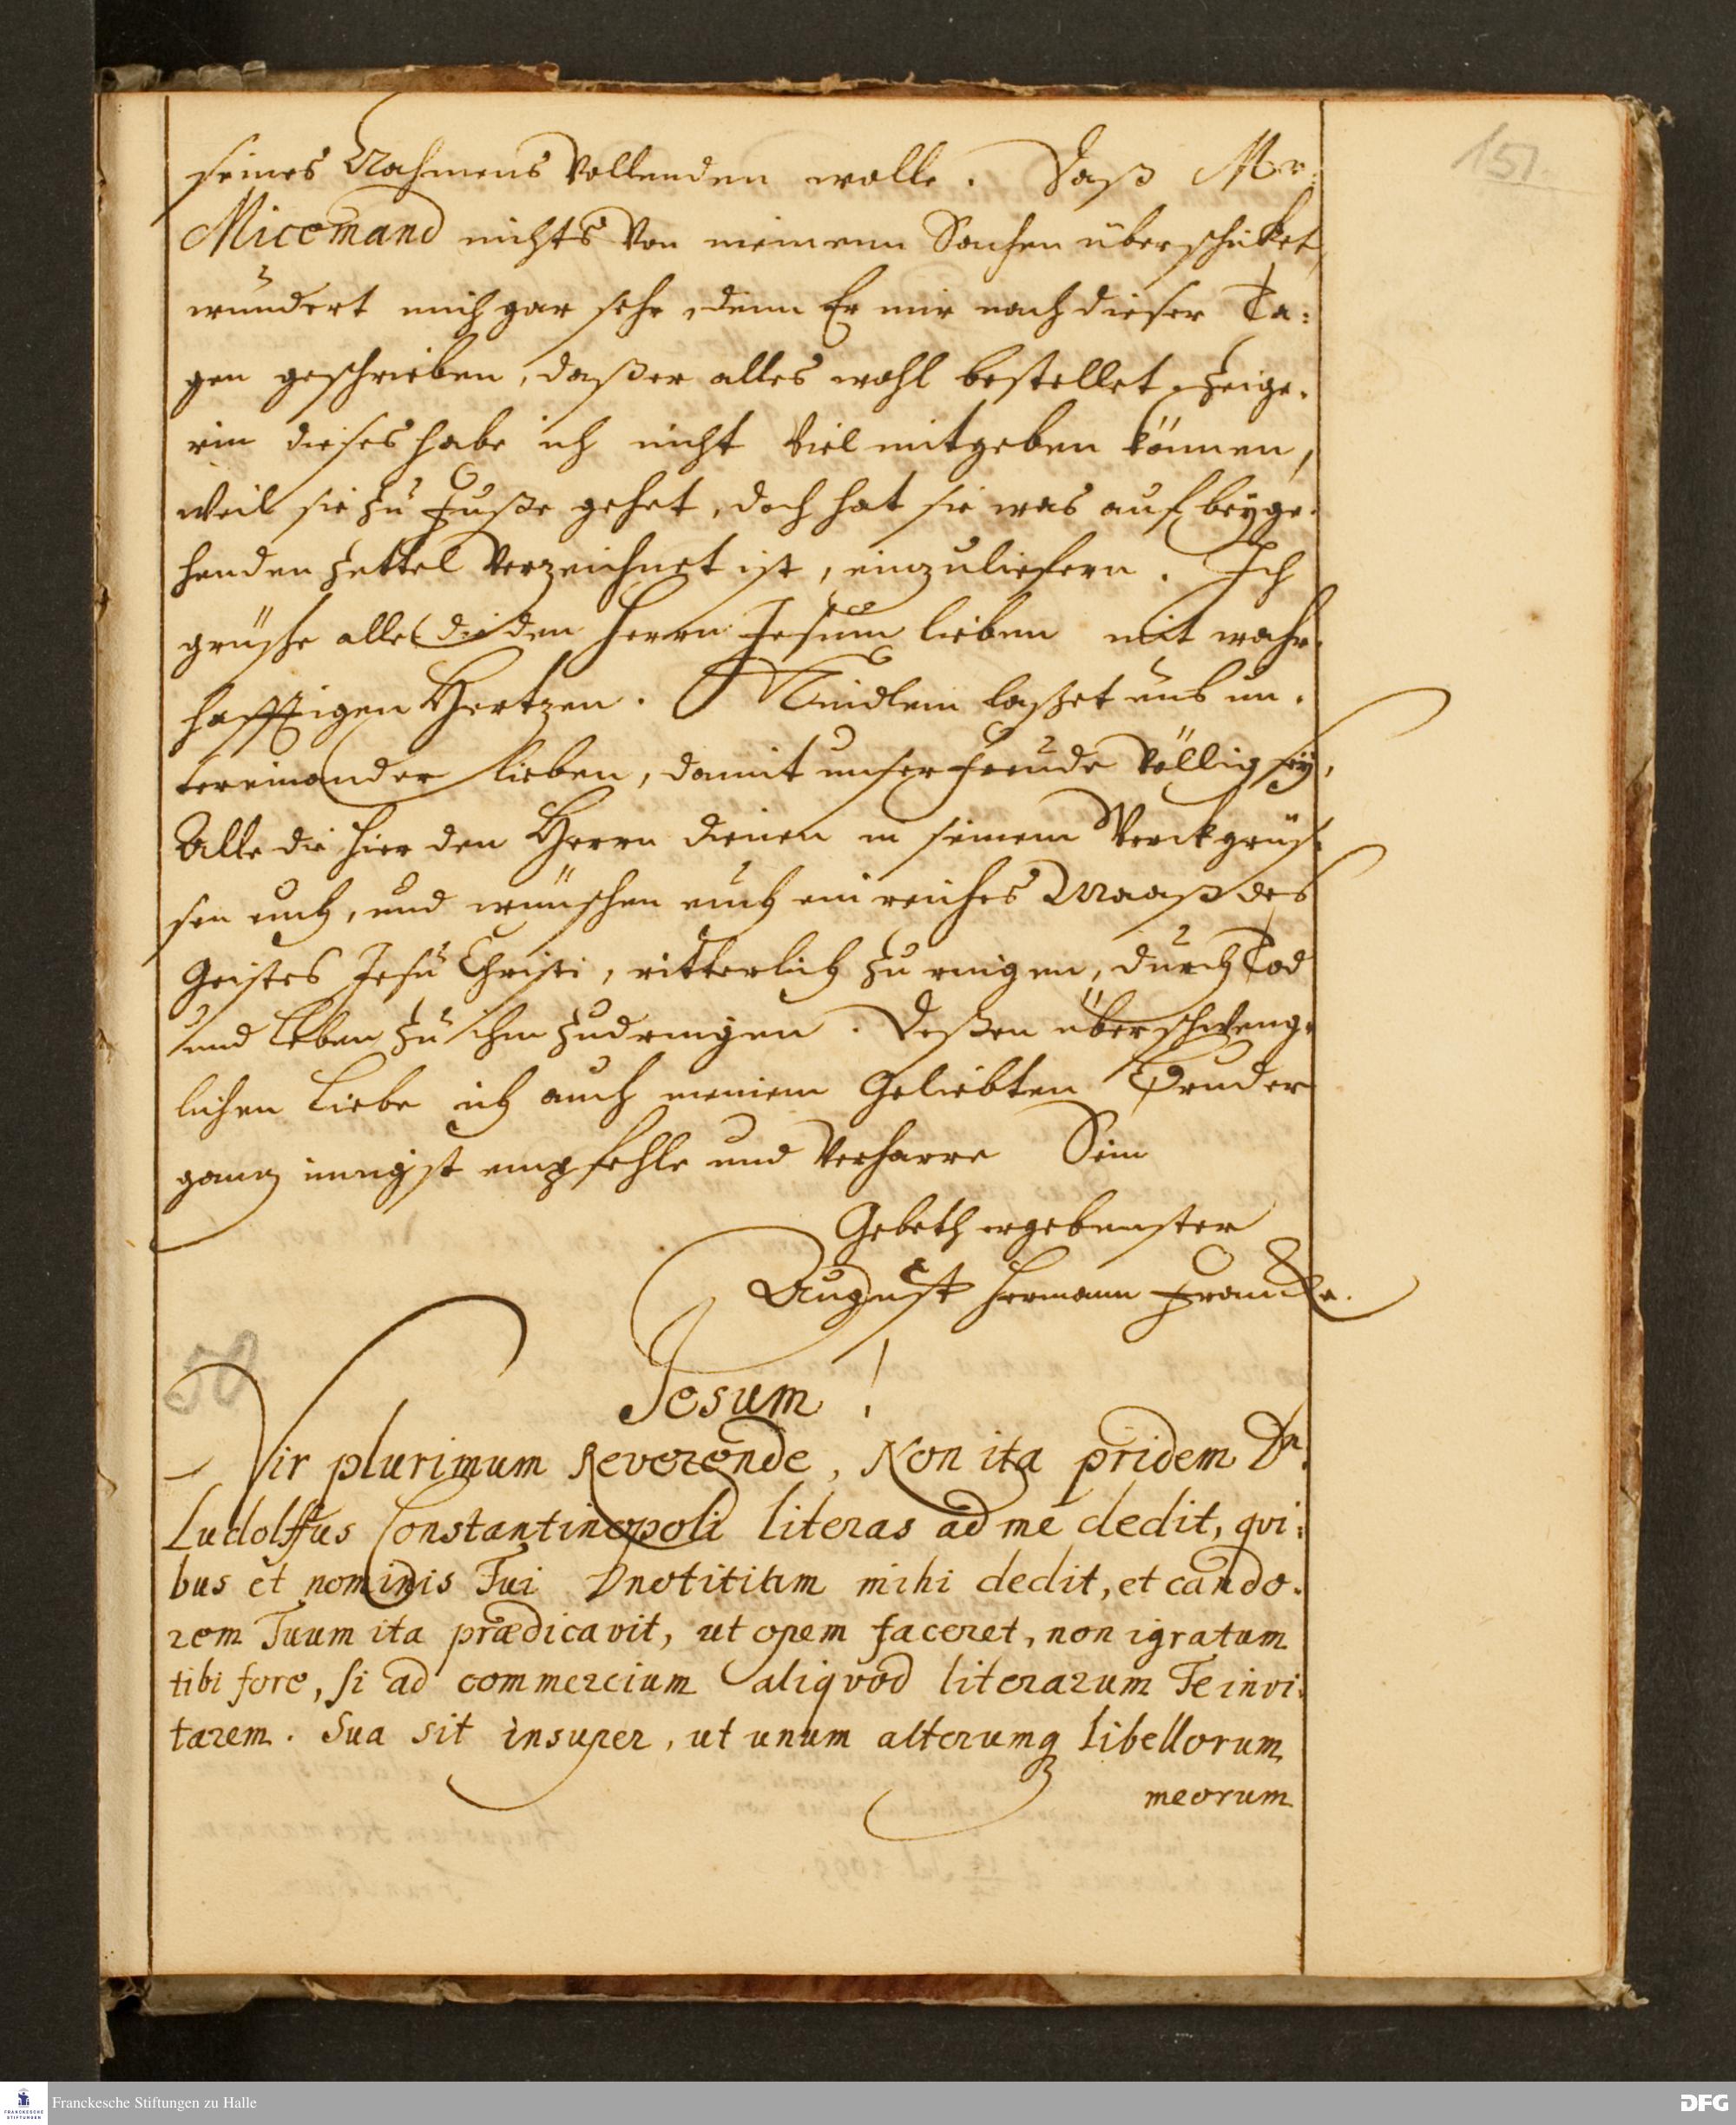 151.
seines Nahmens Vollenden wolle. Daß Mr:
Micemand nichts Von meinenn Sachen überschicket,
wundert mich gar sehr, denn Er mir nach dieser Ta:
gen geschrieben, daß er alles wohl bestellet. Zeige-
rin dieses habe ich nicht viel mitgeben können,
weil sie zu Fuße gehet, doch hat sie was auf beyge-
henden Zettel Verzeichnet ist, einzuliefern. Ich
grüsse alle die den Herrn Jesum lieben mit wahr-
hafftigen Hertzen. Kindlein laßet uns un-
tereinander lieben, damit unser Freude Völlig sey,
Alle die hier den Herrn dienen in seinem Werck grüs-
sen euch, und wünschen euch ein reiches Maaß des
Geistes Jesu Christi, ritterlich zu ringen, durch Tod
und Leben zu ihm zudringen. Deßen überschweng-
lichen Liebe ich auch meinem Geliebten Bruder
gantz innigst empfehle und Verharre Sein
Gebeth ergebenster
August Hermann Francke.
50
Jesum!
Vir plurimum Reverende, Non ita pridem Dn.
Ludolffus Constantinopoli literas ad me dedit, qvi:
bus et nominis Tui notitiam mihi dedit, et cando-
rem Tuum ita prædicavit, ut opem faceret, non igratum
tibi fore, si ad commercium aliqvod literarum Te invi-
tarem. Sua sit insuper, ut unum alterumq libellorum
meorum
Franckesche Stiftungen zu Halle
FRANCKESCHE STIFTUNGEN
DFG